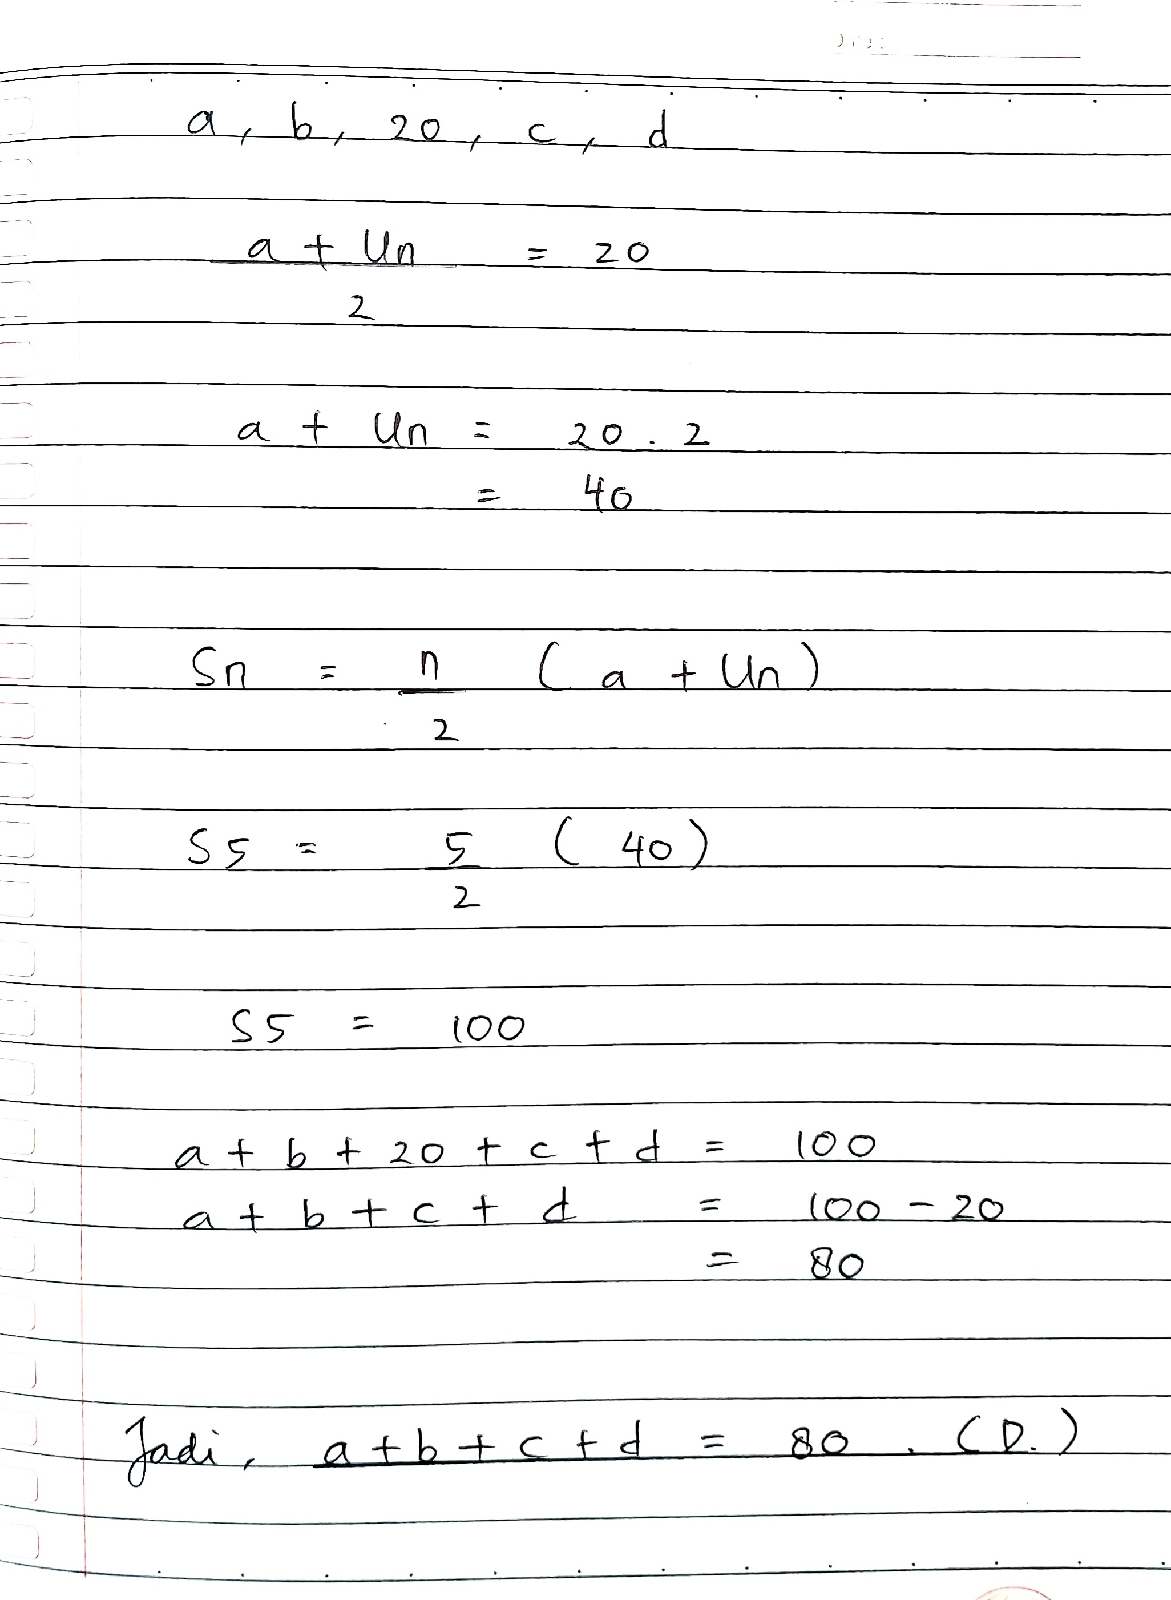 a, b, 20, c, d
a + Un = 20
2
a + Un = 20 . 2
= 40
Sn = n ( a + Un )
2
S5 = 5 ( 40 )
2
S5 = 100
a + b + 20 + c + d = 100
a + b + c + d = 100 - 20
= 80
Jadi, a + b + c + d = 80 . (D.)